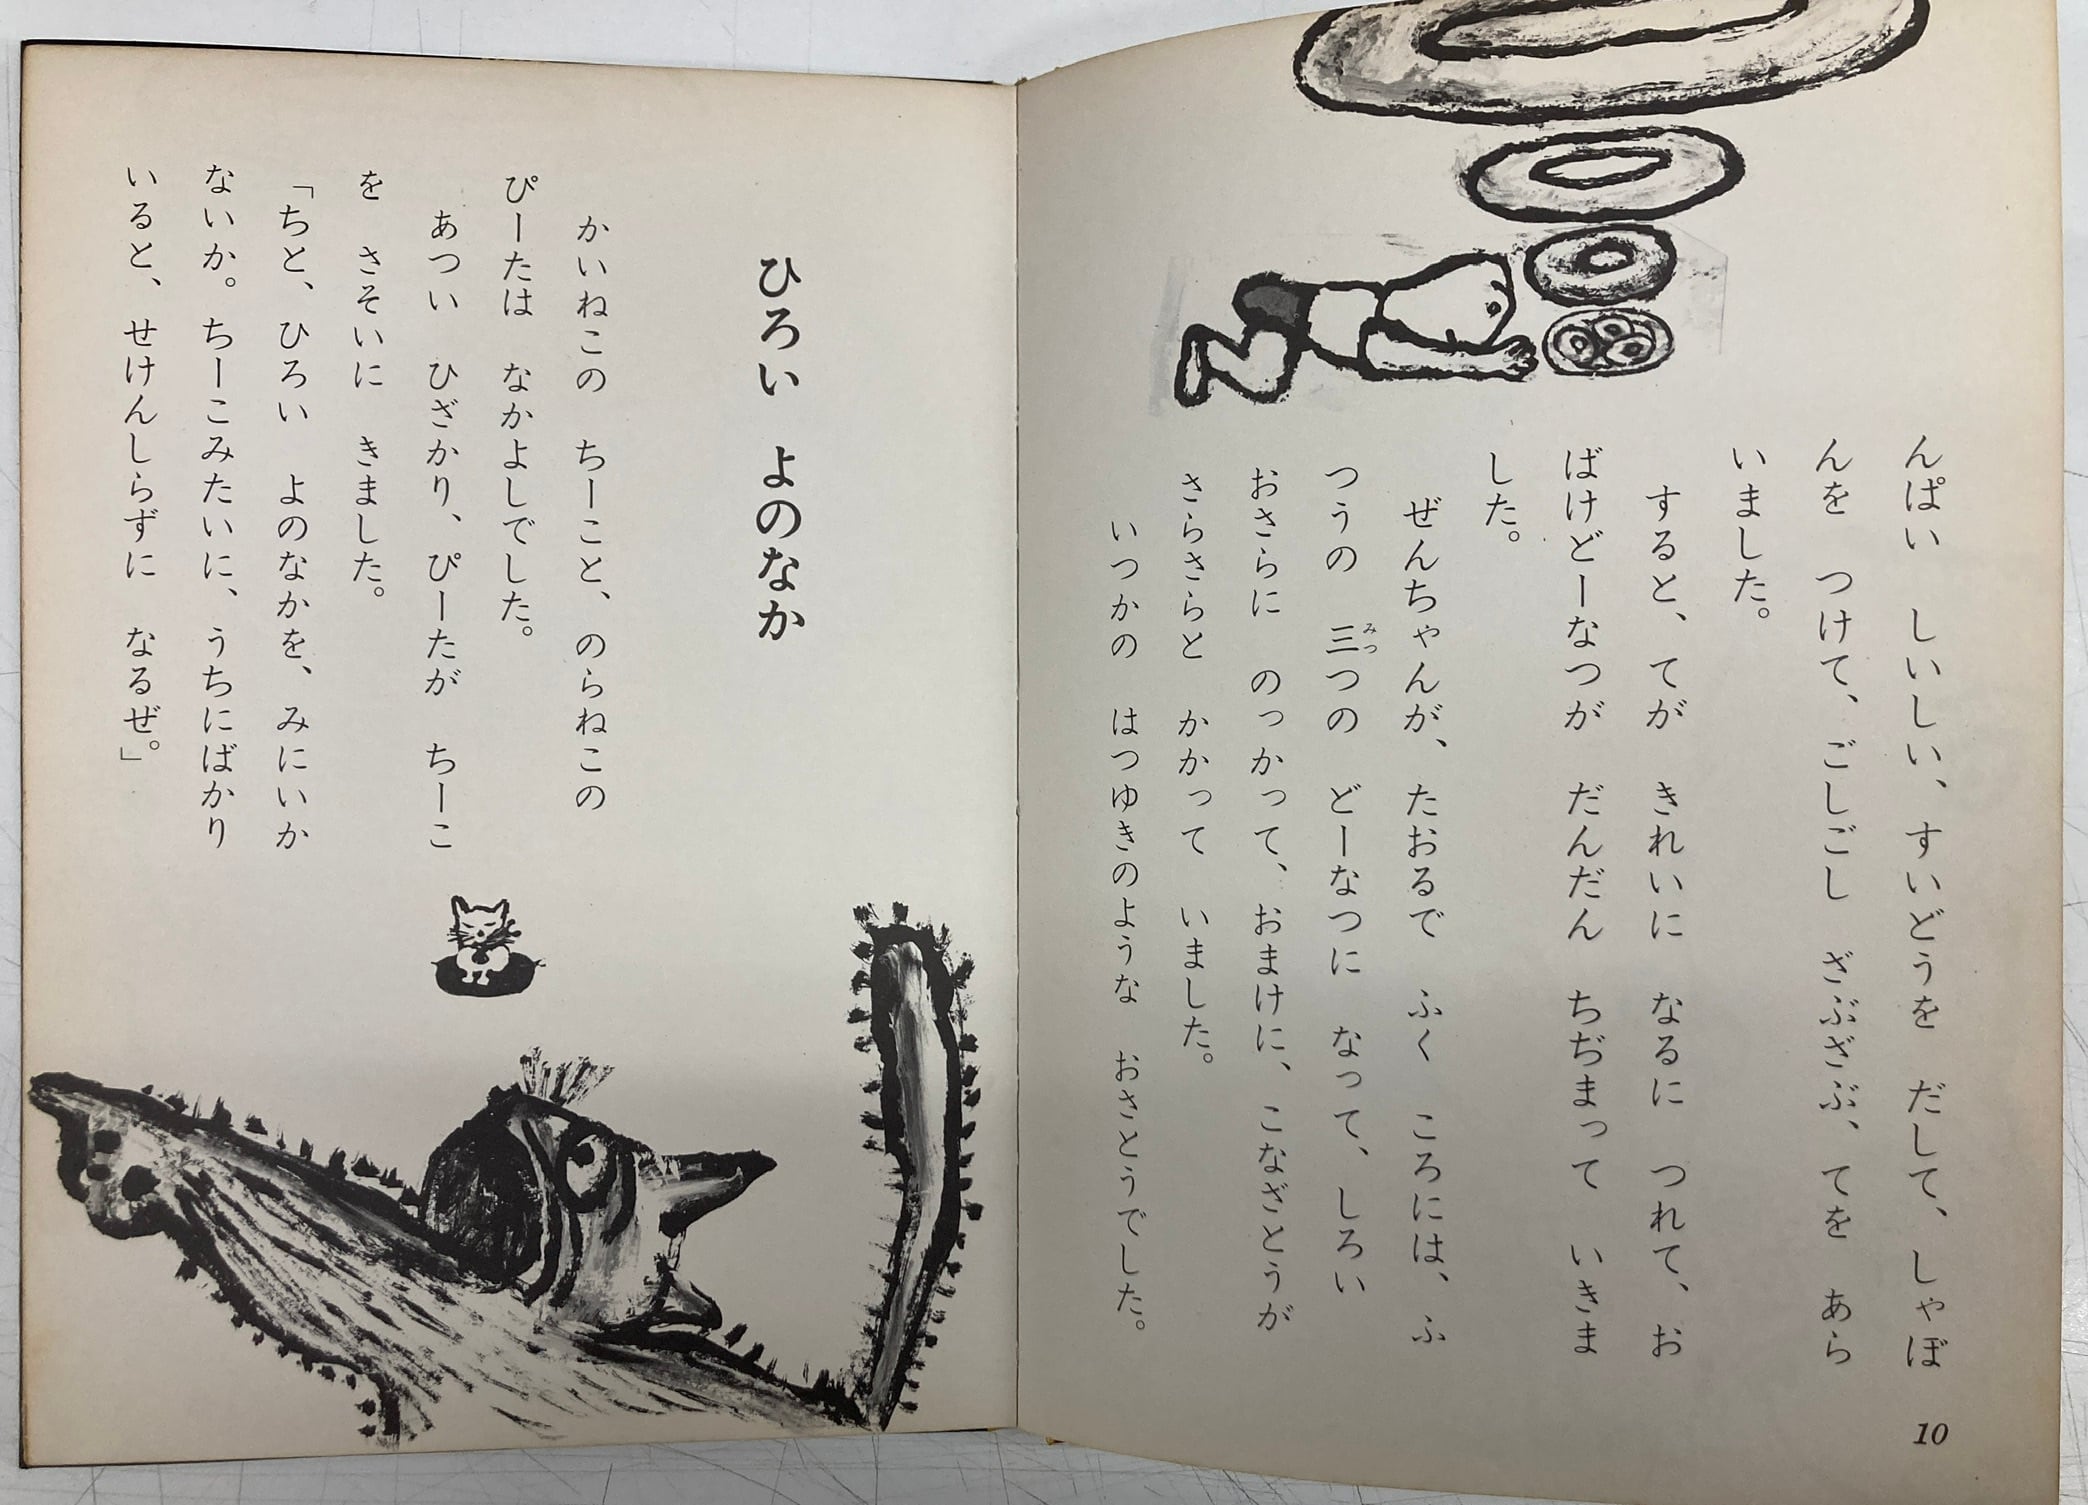 んぱい　しいしい、すいどうを　だして、しゃぼ
んを　つけて、ごしごし　ざぶざぶ、てを　あら
いました。
すると、てが　きれいに　なるに　つれて、お
ばけどーなつが　だんだん　ちぢまって　いきま
した。
ぜんちゃんが、たおるで　ふく　ころには、ふ
つうの　三つの　どーなつに　なって、しろい
みつ
おさらに　のっかって、おまけに、こなざとうが
さらさらと　かかって　いました。
いつかの　はつゆきのような　おさとうでした。
10
ひろい　よのなか
かいねこの　ちーこと、のらねこの
ぴーたは　なかよしでした。
あつい　ひざかり、ぴーたが　ちーこ
を　さそいに　きました。
「ちと、ひろい　よのなかを、みにいか
ないか。ちーこみたいに、うちにばかり
いると、せけんしらずに　なるぜ。」